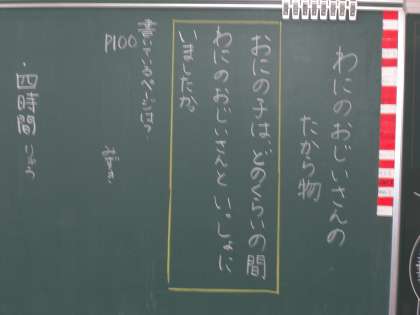 わにのおじいさんの
たから物
おにの子は、どのくらいの間
わにのおじいさんと いっしょに
いましたか。
書いているページは?
P100
みずき・
・四時間 りゆう